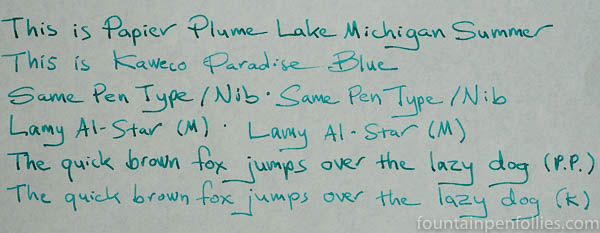 This is Papier Plume Lake Michigan Summer
This is Kaweco Paradise Blue
Same Pen Type / Nib · Same Pen Type / Nib
Lamy Al-Star (M) · Lamy Al-Star (M)
The quick brown fox jumps over the lazy dog (P.P.)
The quick brown fox jumps over the lazy dog (K)
fountainpenfollies.com